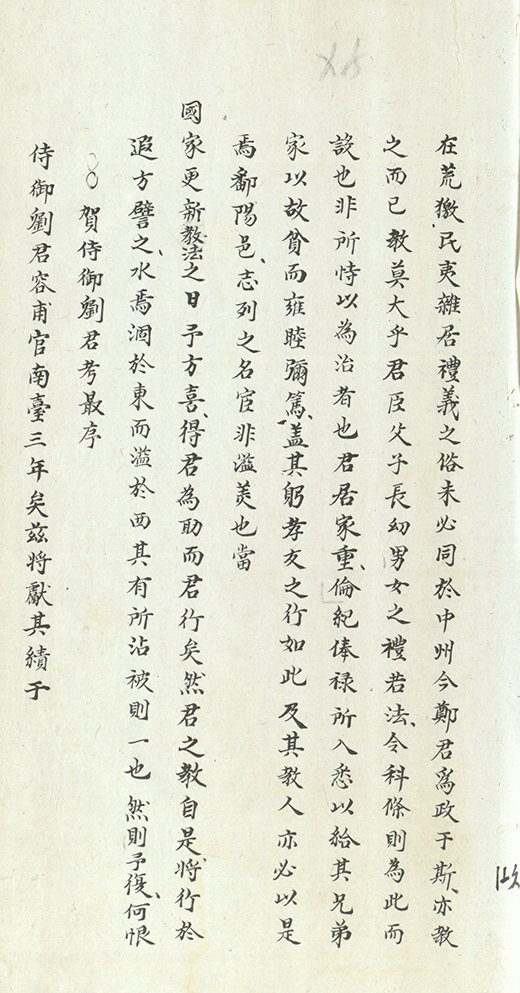 在荒徼民夷雜居禮義之俗未必同於中州今鄭君為政于斯亦教
之而已教莫大乎君臣父子長幼男女之禮若法令科條則為此而
設也非所恃以為治者也君居家重倫紀俸祿所入悉以給其兄弟
家以故貧而雍睦彌篤蓋其躬孝友之行如此及其教人亦必以是
焉鄱陽邑志列之名宦非溢美也當
國家更新教法之日予方喜得君為助而君行矣然君之教自是將行於
遐方譬之水焉涸於東而溢於西其有所沾被則一也然則予復何恨
賀侍御劉君考最序
侍御劉君容甫官南臺三年矣茲將獻其績于